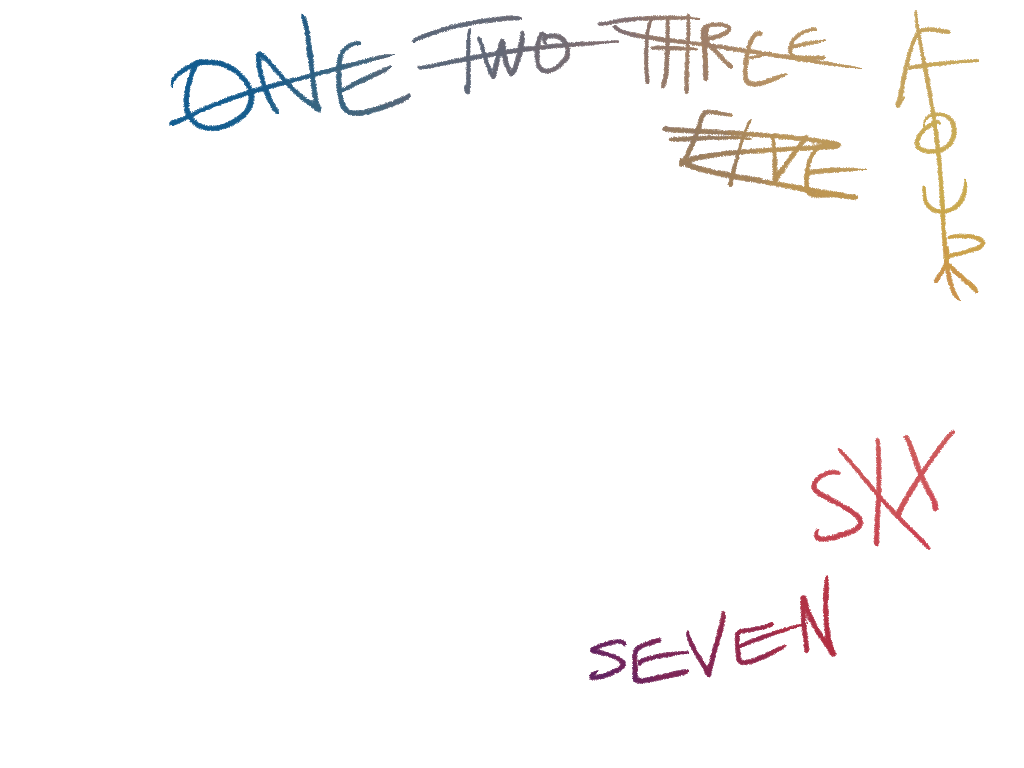 ONE TWO THREE FOUR
FIVE
SIX
SEVEN